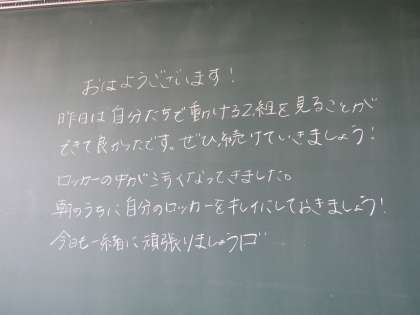 おはようございます！
昨日は自分たちで動ける2組を見ることが
できて良かったです。ぜひ続けていきましょう！
ロッカーの中が汚くなってきました。
朝のうちに自分のロッカーをキレイにしておきましょう！
今日も一緒に頑張りましょう